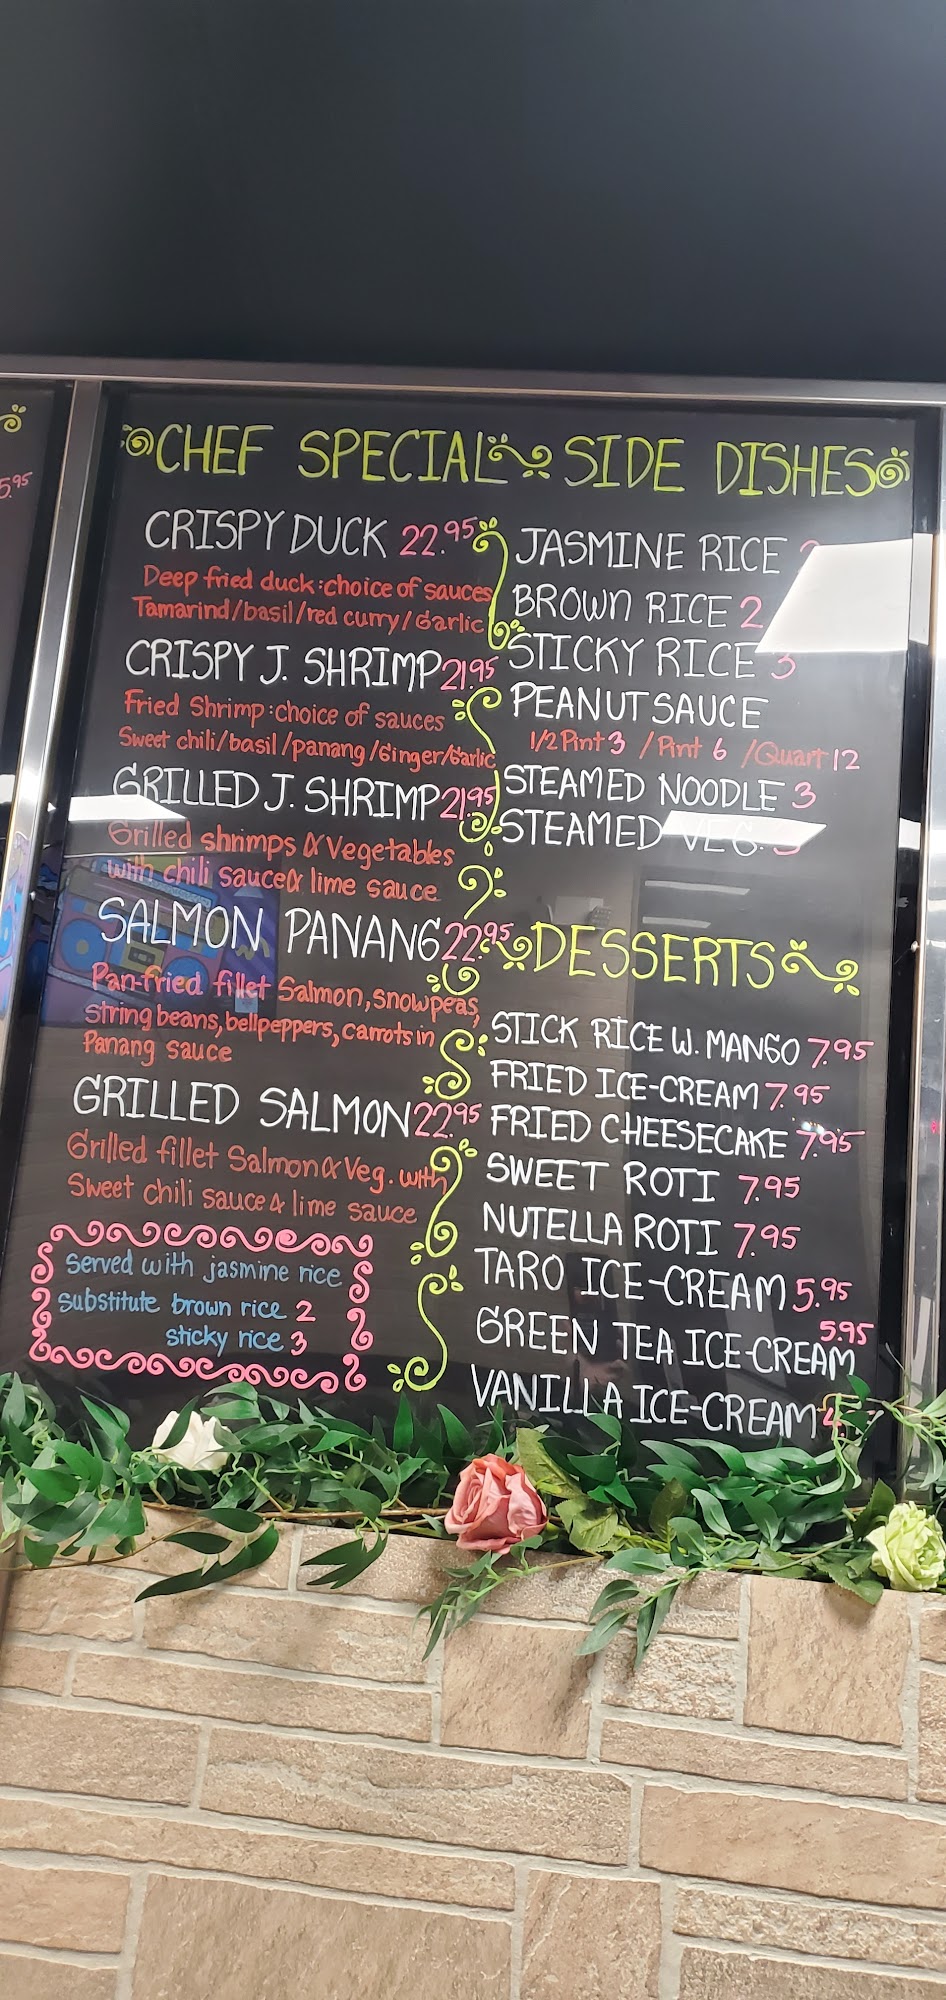 5.95
CHEF SPECIAL
CRISPY DUCK 22.95
Deep fried duck:choice of sauces
Tamarind/basil/red curry/Garlic
CRISPY J. SHRIMP 21.95
Fried Shrimp:choice of sauces
Sweet chili/basil/panang/Ginger/Garlic
GRILLED J. SHRIMP 21.95
Grilled shrimps & Vegetables
with chili sauce & lime sauce
SALMON PANANG 22.95
Pan-fried fillet Salmon, snowpeas,
string beans, bellpeppers, carrots in
Panang sauce
GRILLED SALMON 22.95
Grilled fillet Salmon & Veg. with
Sweet chili sauce & lime sauce
served with jasmine rice
substitute brown rice 2
sticky rice 3
SIDE DISHES
JASMINE RICE
BROWN RICE 2
STICKY RICE 3
PEANUT SAUCE
1/2 Pint 3 / Pint 6 / Quart 12
STEAMED NOODLE 3
STEAMED VEG. 3
DESSERTS
STICK RICE W. MANGO 7.95
FRIED ICE-CREAM 7.95
FRIED CHEESECAKE 7.95
SWEET ROTI 7.95
NUTELLA ROTI 7.95
TARO ICE-CREAM 5.95
5.95
GREEN TEA ICE-CREAM
VANILLA ICE-CREAM